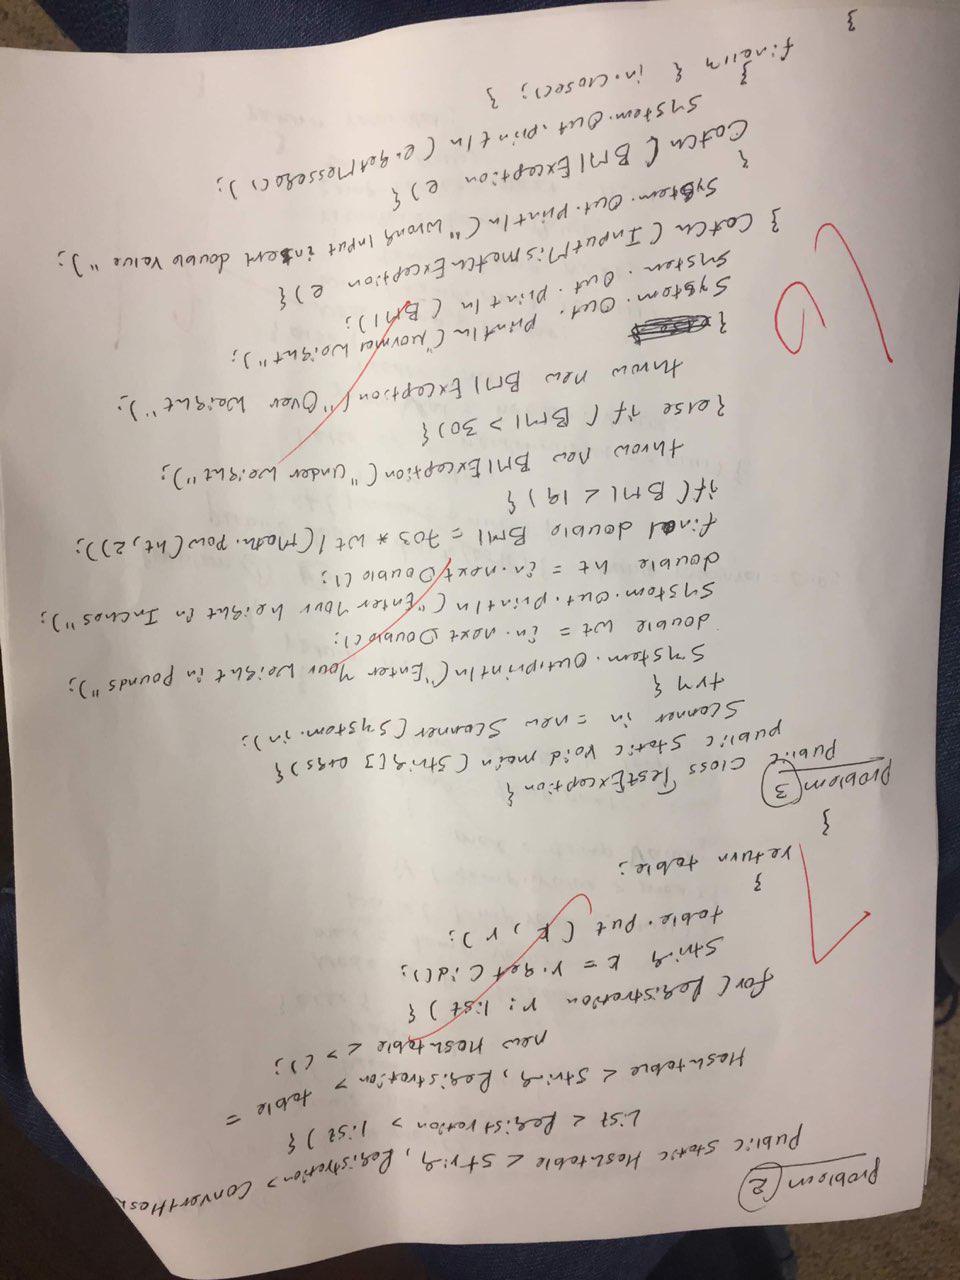 Problem (2)
Public static Hashtable < String, Registration > ConvertHash
List < Registration > list ) {
Hashtable < String, Registration > table =
new Hashtable < > ();
for( Registration r : list ) {
String k = r.getCid();
table.put ( k, r );
}
7
return table;
}
Problem (3)
Public class TestException {
public static void main ( String [] args ) {
Scanner in = new Scanner ( System.in );
try {
System.out.println ( "Enter Your Weight in Pounds" );
double wt = in.nextDouble();
System.out.println ( "Enter Your height in Inches" );
double ht = in.nextDouble();
final double BMI = 703 * wt / ( Math.pow ( ht, 2 ) );
if( BMI < 19 ) {
throw new BMIException ( "Under Weight" );
} else if ( BMI > 30 ) {
throw new BMIException ( "Over Weight" );
}
System.out.println ( "Normal Weight" );
System.out.println ( BMI );
10
} Catch ( InputMismatchException e ) {
System.out.println ( "Wrong Input insert double value" );
}
Catch ( BMIException e ) {
System.out.println ( e.getMessage() );
}
finally { in.close(); }
}